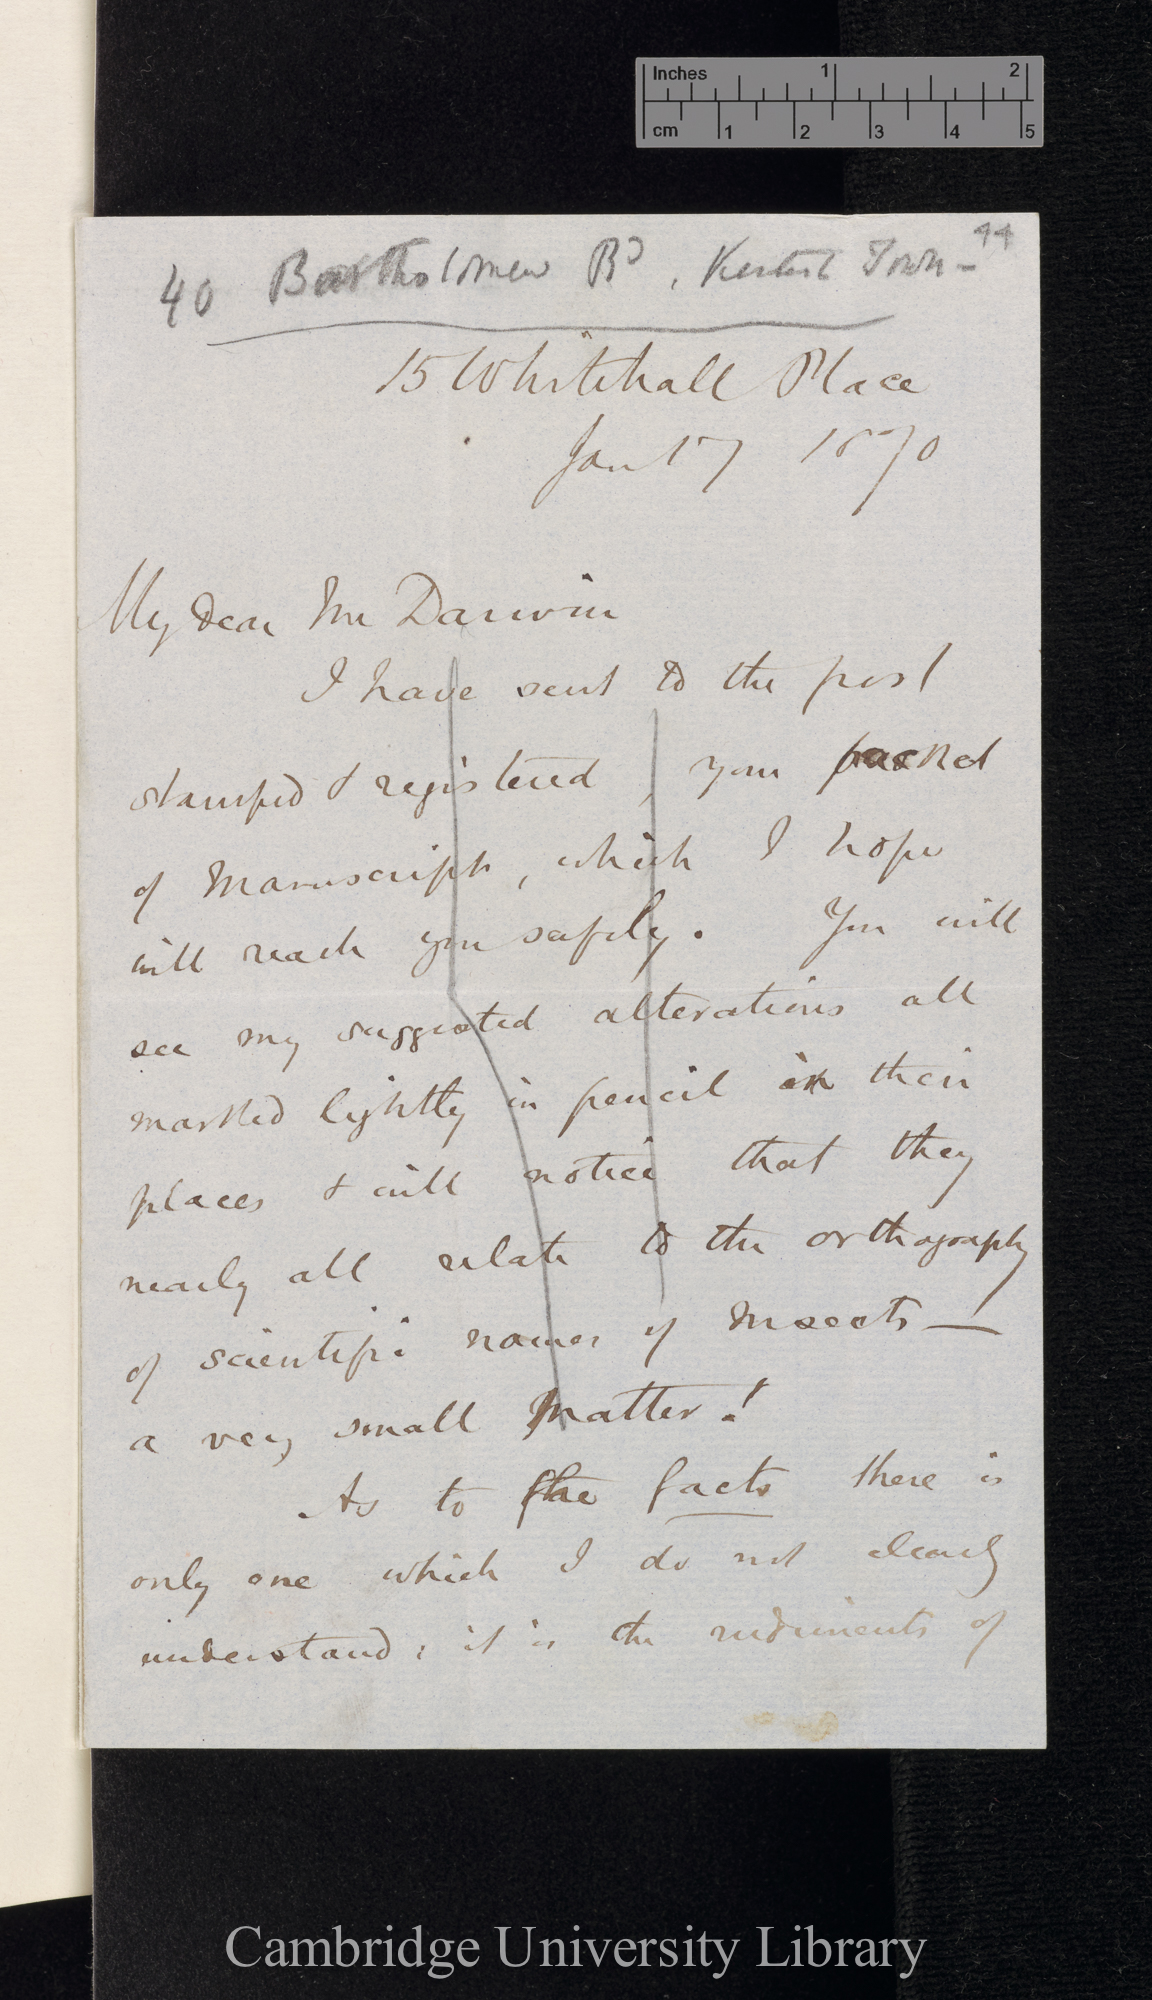 Inches 1 2
cm 1 2 3 4 5
44
40 Bartholomew Rd, Kentish Town -
15 Whitehall Place
Jan 17 1870
My dear Mr Darwin
I have sent to the post
stamped & registered, your packed
of Manuscript, which I hope
will reach you safely. You will
see my suggested alterations all
marked lightly in pencil in their
places & will notice that they
nearly all relate to the orthography
of scientific names of Insects —
a very small matter!
As to the facts there is
only one which I do not clearly
understand; it is the rudiments of
Cambridge University Library